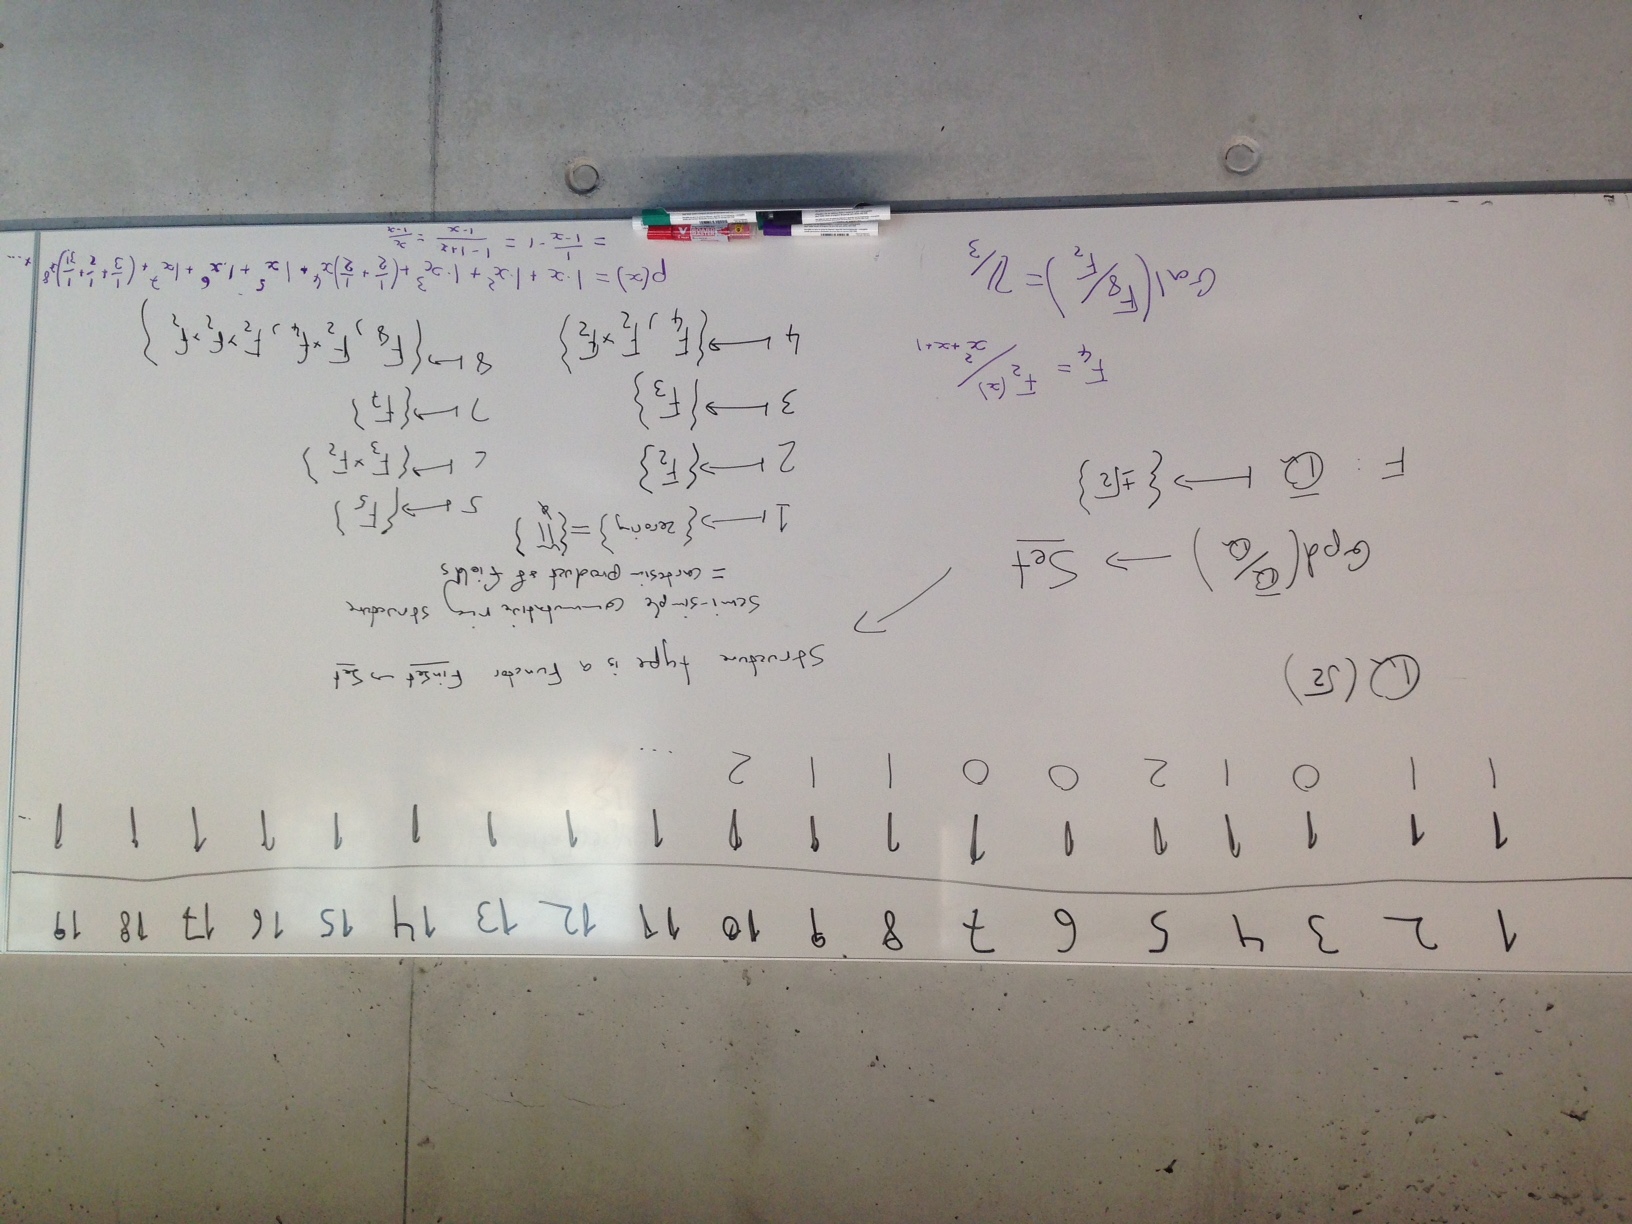 1 2 3 4 5 6 7 8 9 10 11 12 13 14 15 16 17 18 19
1 1 1 1 1 1 1 1 1 1 1 1 1 1 1 1 1 1 1 ..
1 1 0 1 2 0 0 1 1 2 ...
ℚ(√2)
Gpd(ℚ̄/ℚ) → Set
F : ℚ̄ ↦ {±√2}
F₄ = F₂(x)/x²+x+1
Gal(F₈/F₂) = ℤ/3
Structure type is a Functor FinSet → Set
semi-simple commutative ring structure
= cartesin product of fields
1 ↦ {zero ring} = {∏}
2 ↦ {F₂}
3 ↦ {F₃}
4 ↦ {F₄, F₂×F₂}
5 ↦ {F₅}
6 ↦ {F₃×F₂}
7 ↦ {F₇}
8 ↦ {F₈, F₂×F₄, F₂×F₂×F₂}
p(x) = 1·x + 1·x² + 1·x³ + (1/2 + 1/2)x⁴ + 1x⁵ + 1.x⁶ + 1x⁷ + (1/3 + 1/2 + 1/3!)x⁸ + ...
= 1/1-x -1 = 1-1+x/1-x = x/1-x